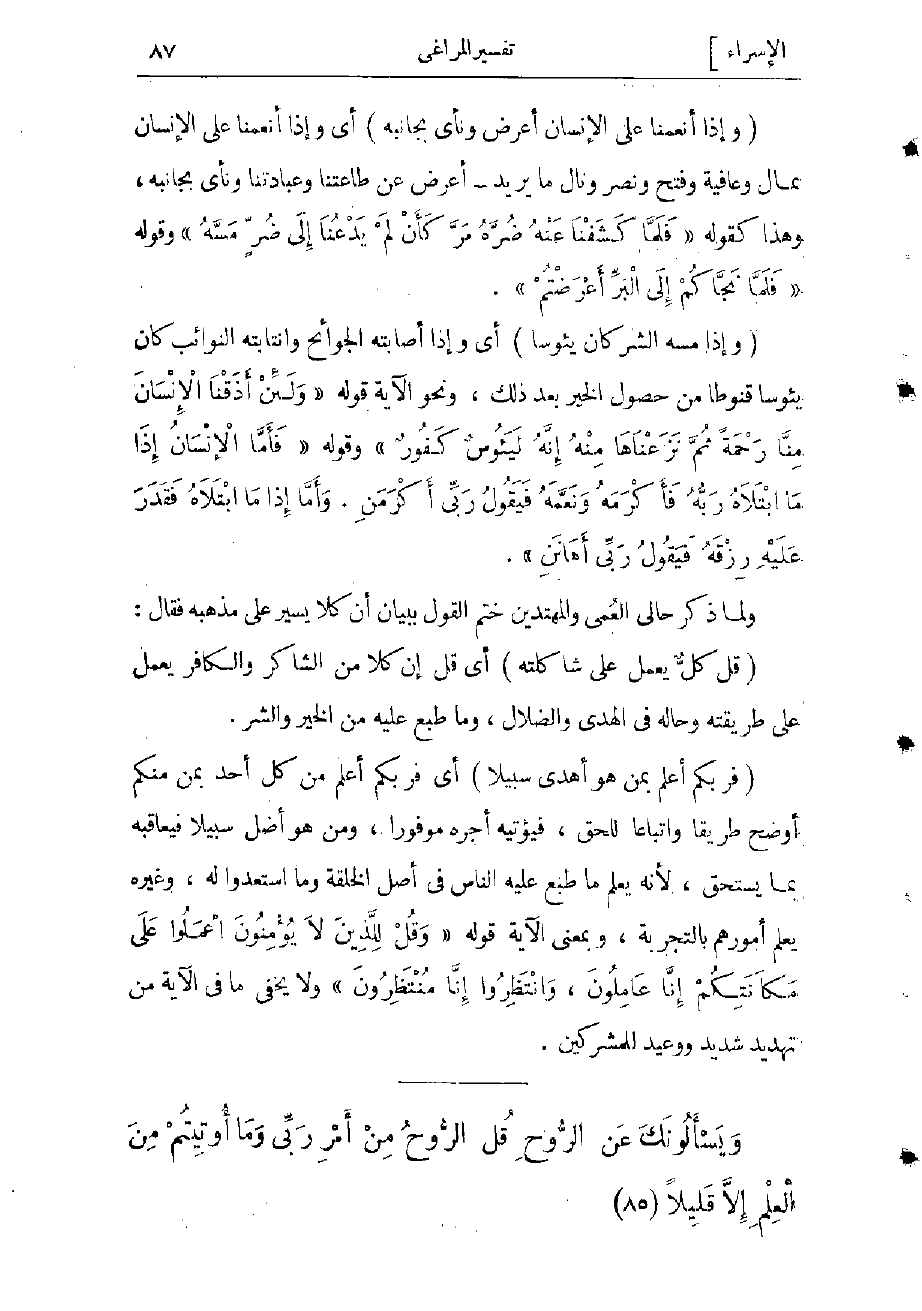 الإسراء ] تفسير المراغى ٨٧
( و إذا أنعمنا على الإنسان أعرض ونأى بجانبه ) أى و إذا أنعمنا على الإنسان
بمـال وعافية وفتح ونصر ونال ما يريد ــ أعرض عن طاعتنا وعبادتنا ونأى بجانبه ،
وهذا كقوله « فَلَمَّا كَشَفْنَا عَنْهُ ضُرَّهُ مَرَّ كَأَنْ لَمْ يَدْعُنَا إِلَى ضُرٍّ مَسَّهُ » وقوله
« فَلَمَّا نَجَّاكُمْ إِلَى الْبَرِّ أَعْرَضْتُمْ » .
( و إذا مسه الشر كان يئوسا ) أى و إذا أصابته الجوائح وانتابته النوائب كان
يئوسا قنوطا من حصول الخير بعد ذلك ، ونحو الآية قوله « وَلَـئِنْ أَذَقْنَا الْإِنْسَانَ
مِنَّا رَحْمَةً ثُمَّ نَزَعْنَاهَا مِنْهُ إِنَّهُ لَيَئُوسٌ كَفُورٌ » وقوله « فَأَمَّا الْإِنْسَانُ إِذَا
مَا ابْتَلَاهُ رَبُّهُ فَأَكْرَمَهُ وَنَعَّمَهُ فَيَقُولُ رَبِّى أَكْرَمَنِ . وَأَمَّا إِذَا مَا ابْتَلَاهُ فَقَدَرَ
عَلَيْهِ رِزْقَهُ فَيَقُولُ رَبِّى أَهَانَنِ » .
ولمـا ذكر حالى العُمى والمهتدين ختم القول ببيان أن كلا يسير على مذهبه فقال :
( قل كلٌّ يعمل على شاكلته ) أى قل إن كلا من الشاكر والـكافر يعمل
على طريقته وحاله فى الهدى والضلال ، وما طبع عليه من الخير والشر .
( فربكم أعلم بمن هو أهدى سبيلا ) أى فربكم أعلم من كل أحد بمن منكم
أوضح طريقا واتباعا للحق ، فيؤتيه أجره موفورا ، ومن هو أضل سبيلا فيعاقبه
بمـا يستحق ، لأنه يعلم ما طبع عليه الناس فى أصل الخلقة وما استعدوا له ، وغيره
يعلم أمورهم بالتجربة ، و بمعنى الآية قوله « وَقُلْ لِلَّذِينَ لاَ يُؤْمِنُونَ اعْمَلُوا عَلَى
مَـكَانَتِـكُمْ إِنَّا عَامِلُونَ ، وَانْتَظِرُوا إِنَّا مُنْتَظِرُونَ » ولا يخفى ما فى الآية من
تهديد شديد ووعيد للمشركين .
وَيَسْأَلُونَكَ عَنِ الرُّوحِ قُلِ الرُّوحُ مِنْ أَمْرِ رَبِّى وَمَا أُوتِيتُمْ مِنَ
الْعِلْمِ إِلاَّ قَلِيلاً (٨٥)